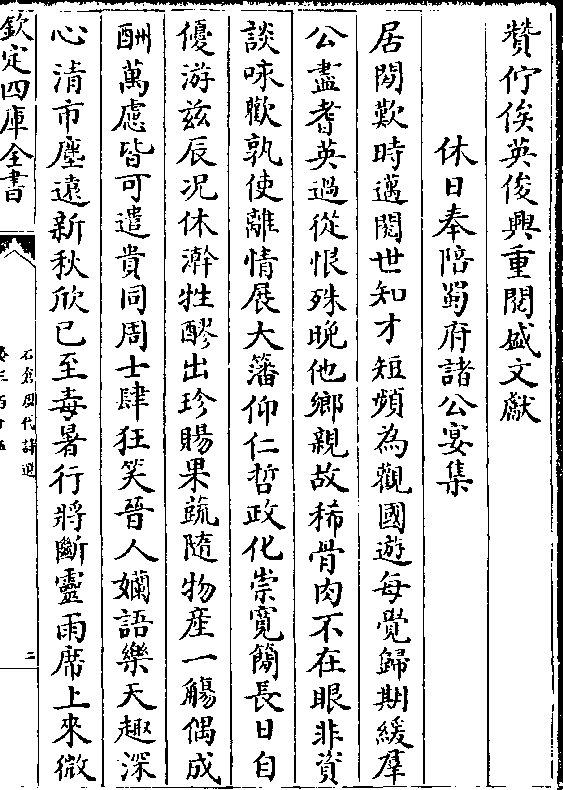 贊佇俟英俊興重閱盛文獻
休日奉陪蜀府諸公宴集
居閒歎時邁閱世知才短頻為觀國遊每覺歸期緩羣
公盡耆英過從恨殊晚他鄉親故稀骨肉不在眼非資
談咏歡孰使離情展大藩仰仁哲政化崇寛簡長日自
優游兹辰况休澣牲醪出珍賜果蓏隨物産一觴偶成
酬萬慮皆可遣貴同周士肆狂笑晉人嬾語樂天趣深
心清市塵遠新秋欣已至毒暑行將斷靈雨席上來微
欽定四庫全書
石倉歷代詩選
二